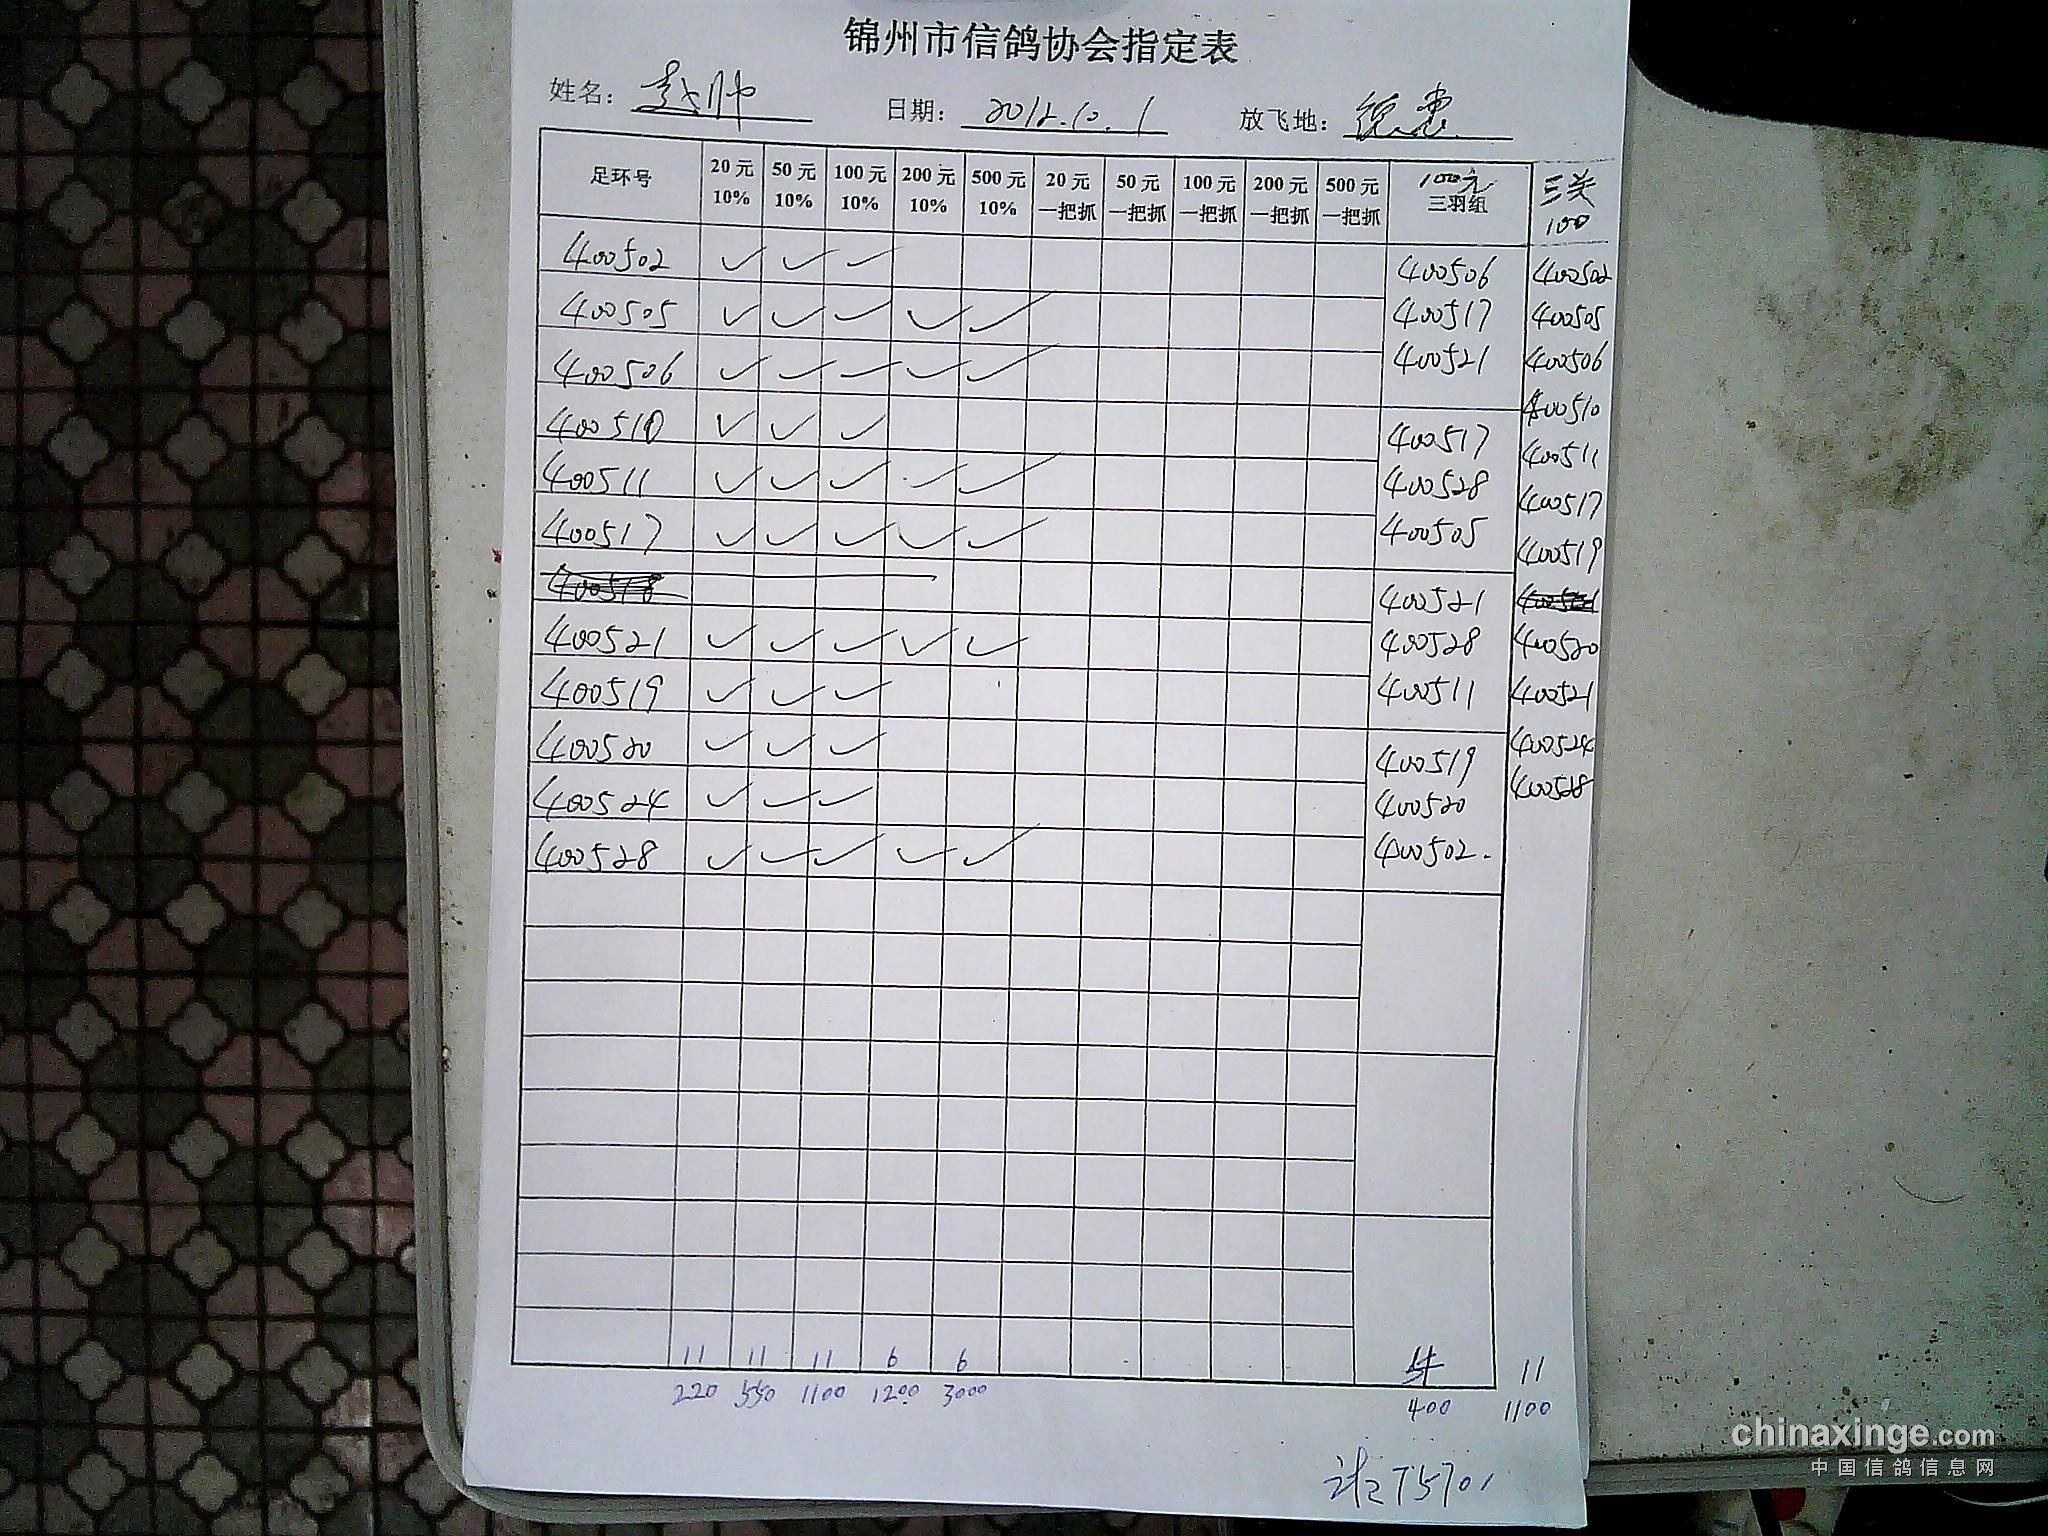 锦州市信鸽协会指定表
姓名： 赵帅 日期： 2012.10.1 放飞地： 德惠
足环号 20元 10% 50元 10% 100元 10% 200元 10% 500元 10% 20元 一把抓 50元 一把抓 100元 一把抓 200元 一把抓 500元 一把抓 100元 三羽组 三关 100
400502 ✓ ✓ ✓
400505 ✓ ✓ ✓ ✓ ✓
400506 ✓ ✓ ✓ ✓ ✓
400510 ✓ ✓ ✓
400511 ✓ ✓ ✓ ✓ ✓
400517 ✓ ✓ ✓ ✓ ✓
400518
400521 ✓ ✓ ✓ ✓ ✓
400519 ✓ ✓ ✓
400520 ✓ ✓ ✓
400524 ✓ ✓ ✓
400528 ✓ ✓ ✓ ✓ ✓
400506
400517
400521
400517
400528
400505
400521
400528
400511
400519
400520
400502.
400502
400505
400506
400510
400511
400517
400519
400520
400521
400524
400528
11 11 11 6 6 11
220 550 1100 1200 3000 400 1100
chinaxinge.com
中国信鸽信息网